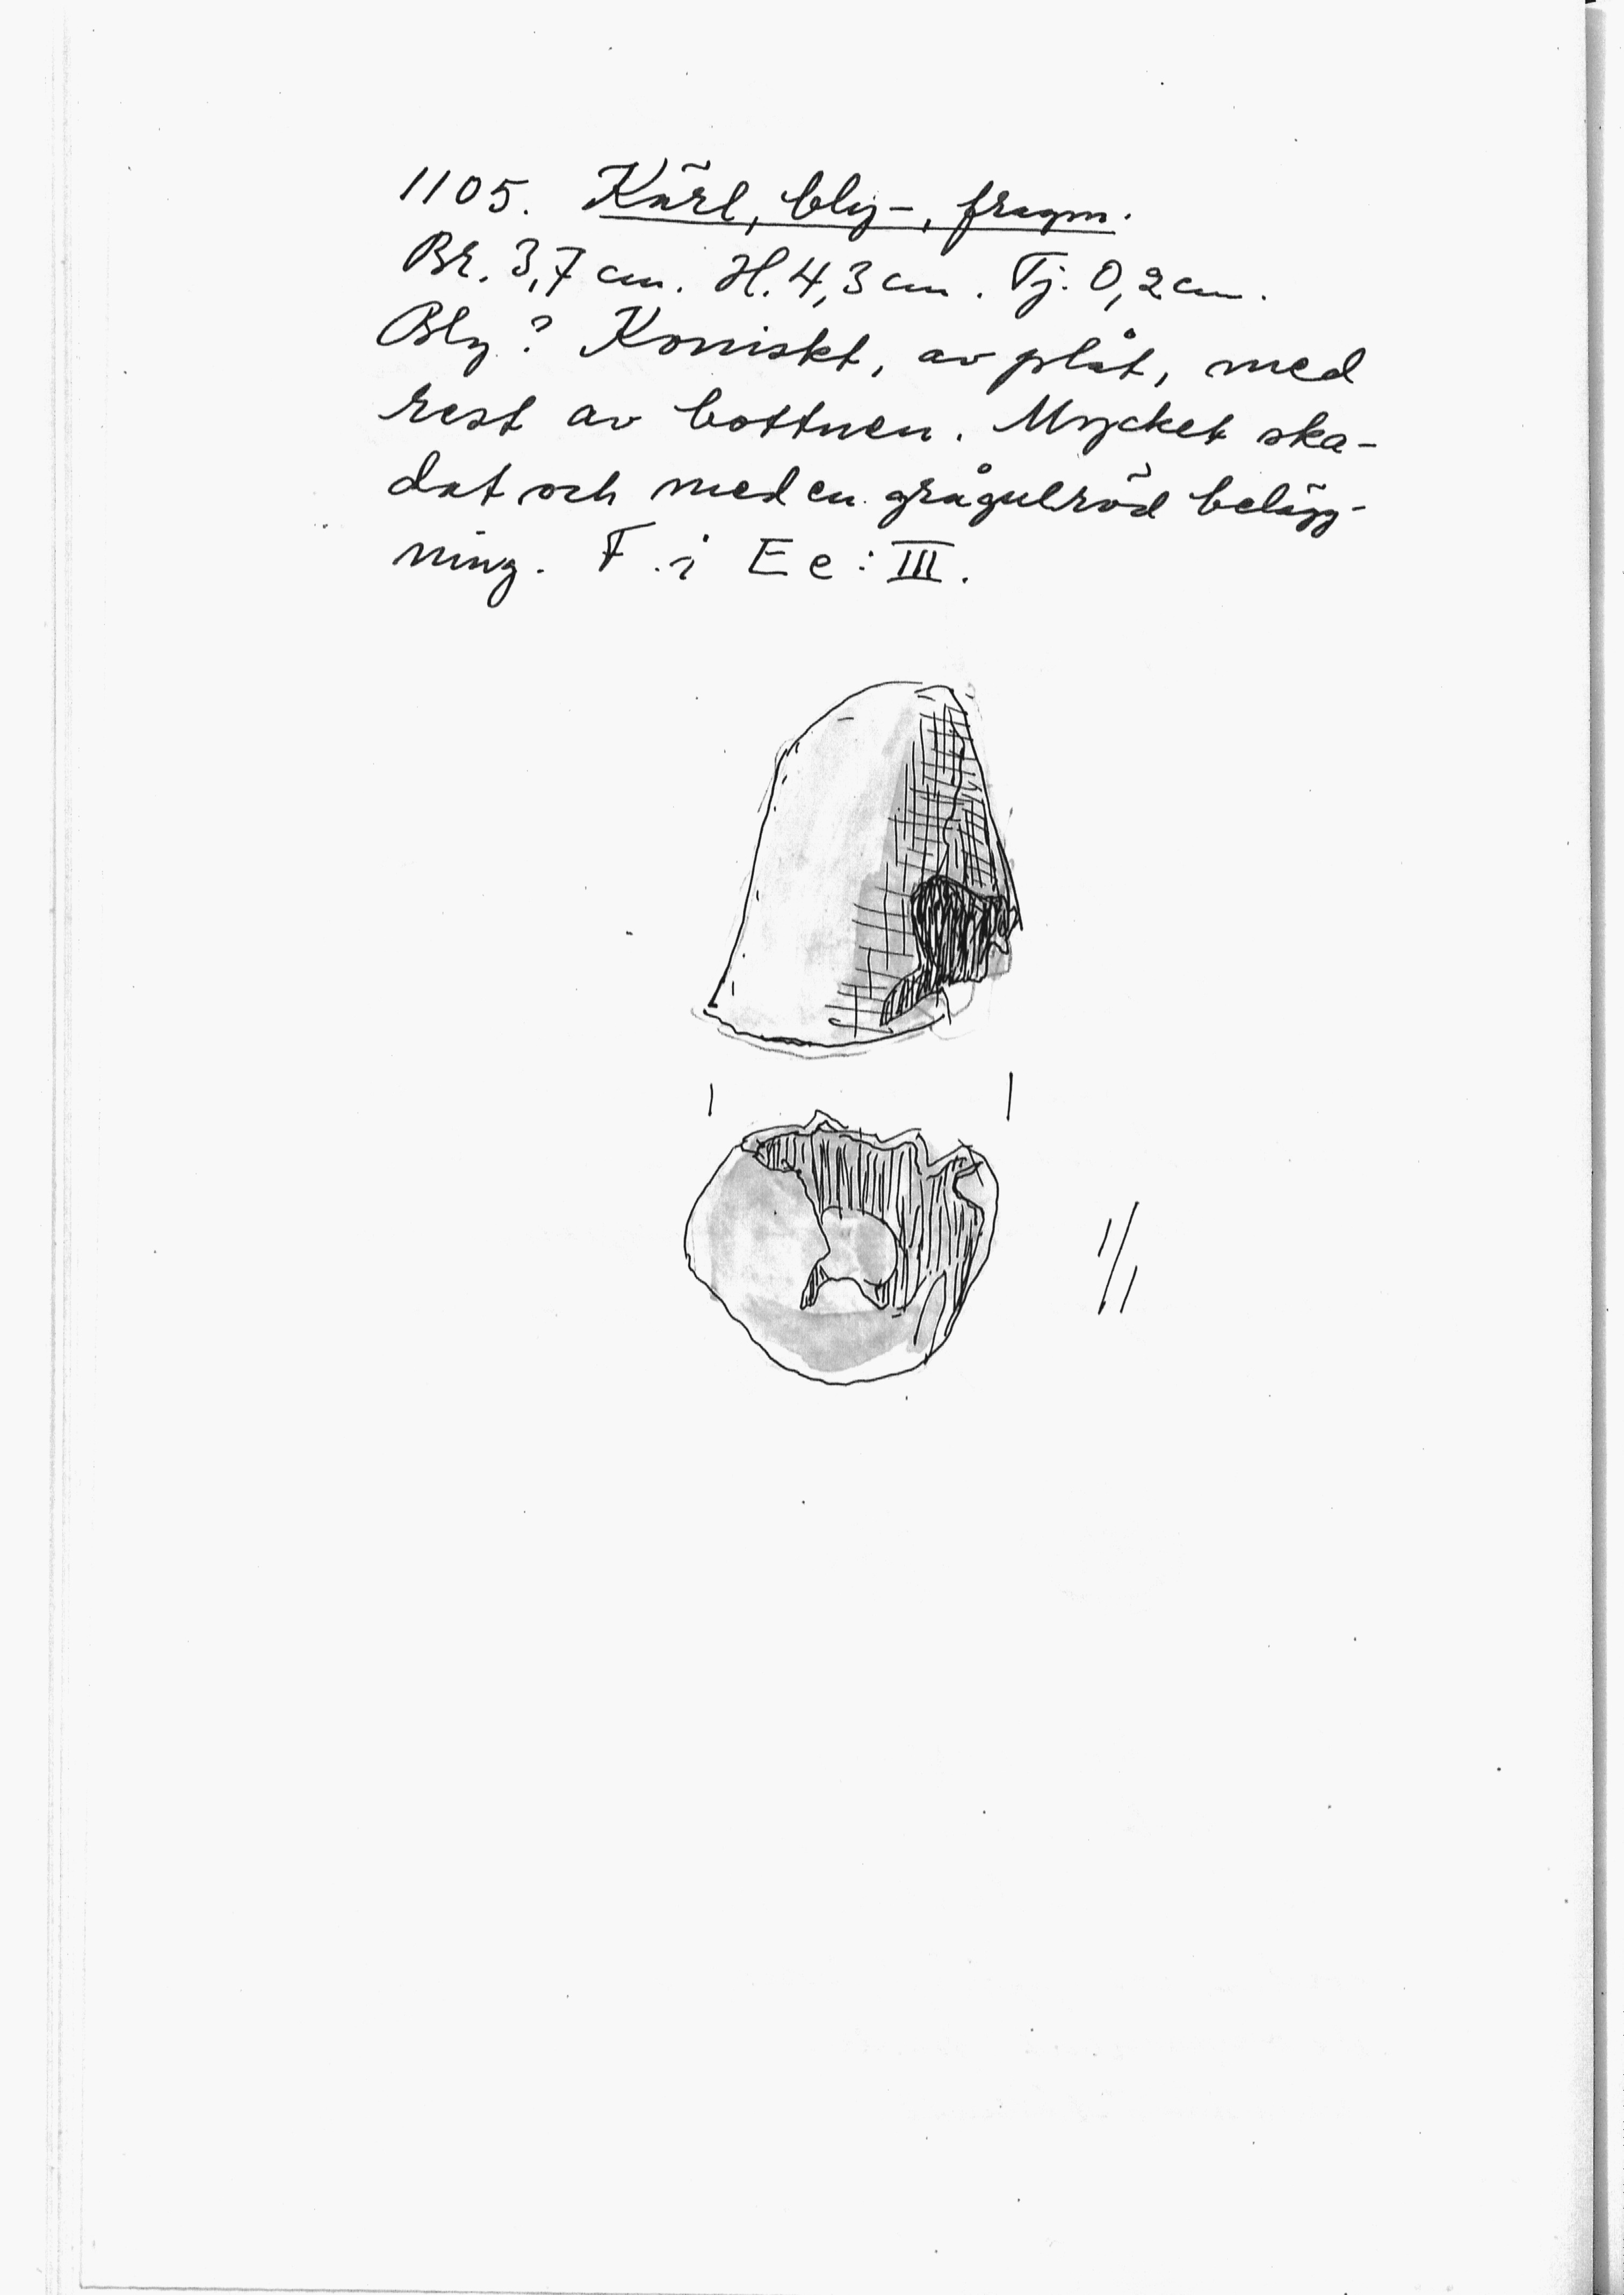 1105. Kärl, bly-, fragm.
Br. 3,7 cm. H. 4,3 cm. Tj. 0,2 cm.
Bly? Koniskt, av plåt, med
rest av bottnen. Mycket ska-
dat och med en grågulröd belägg-
ning. F. i Ee: III.
1/1